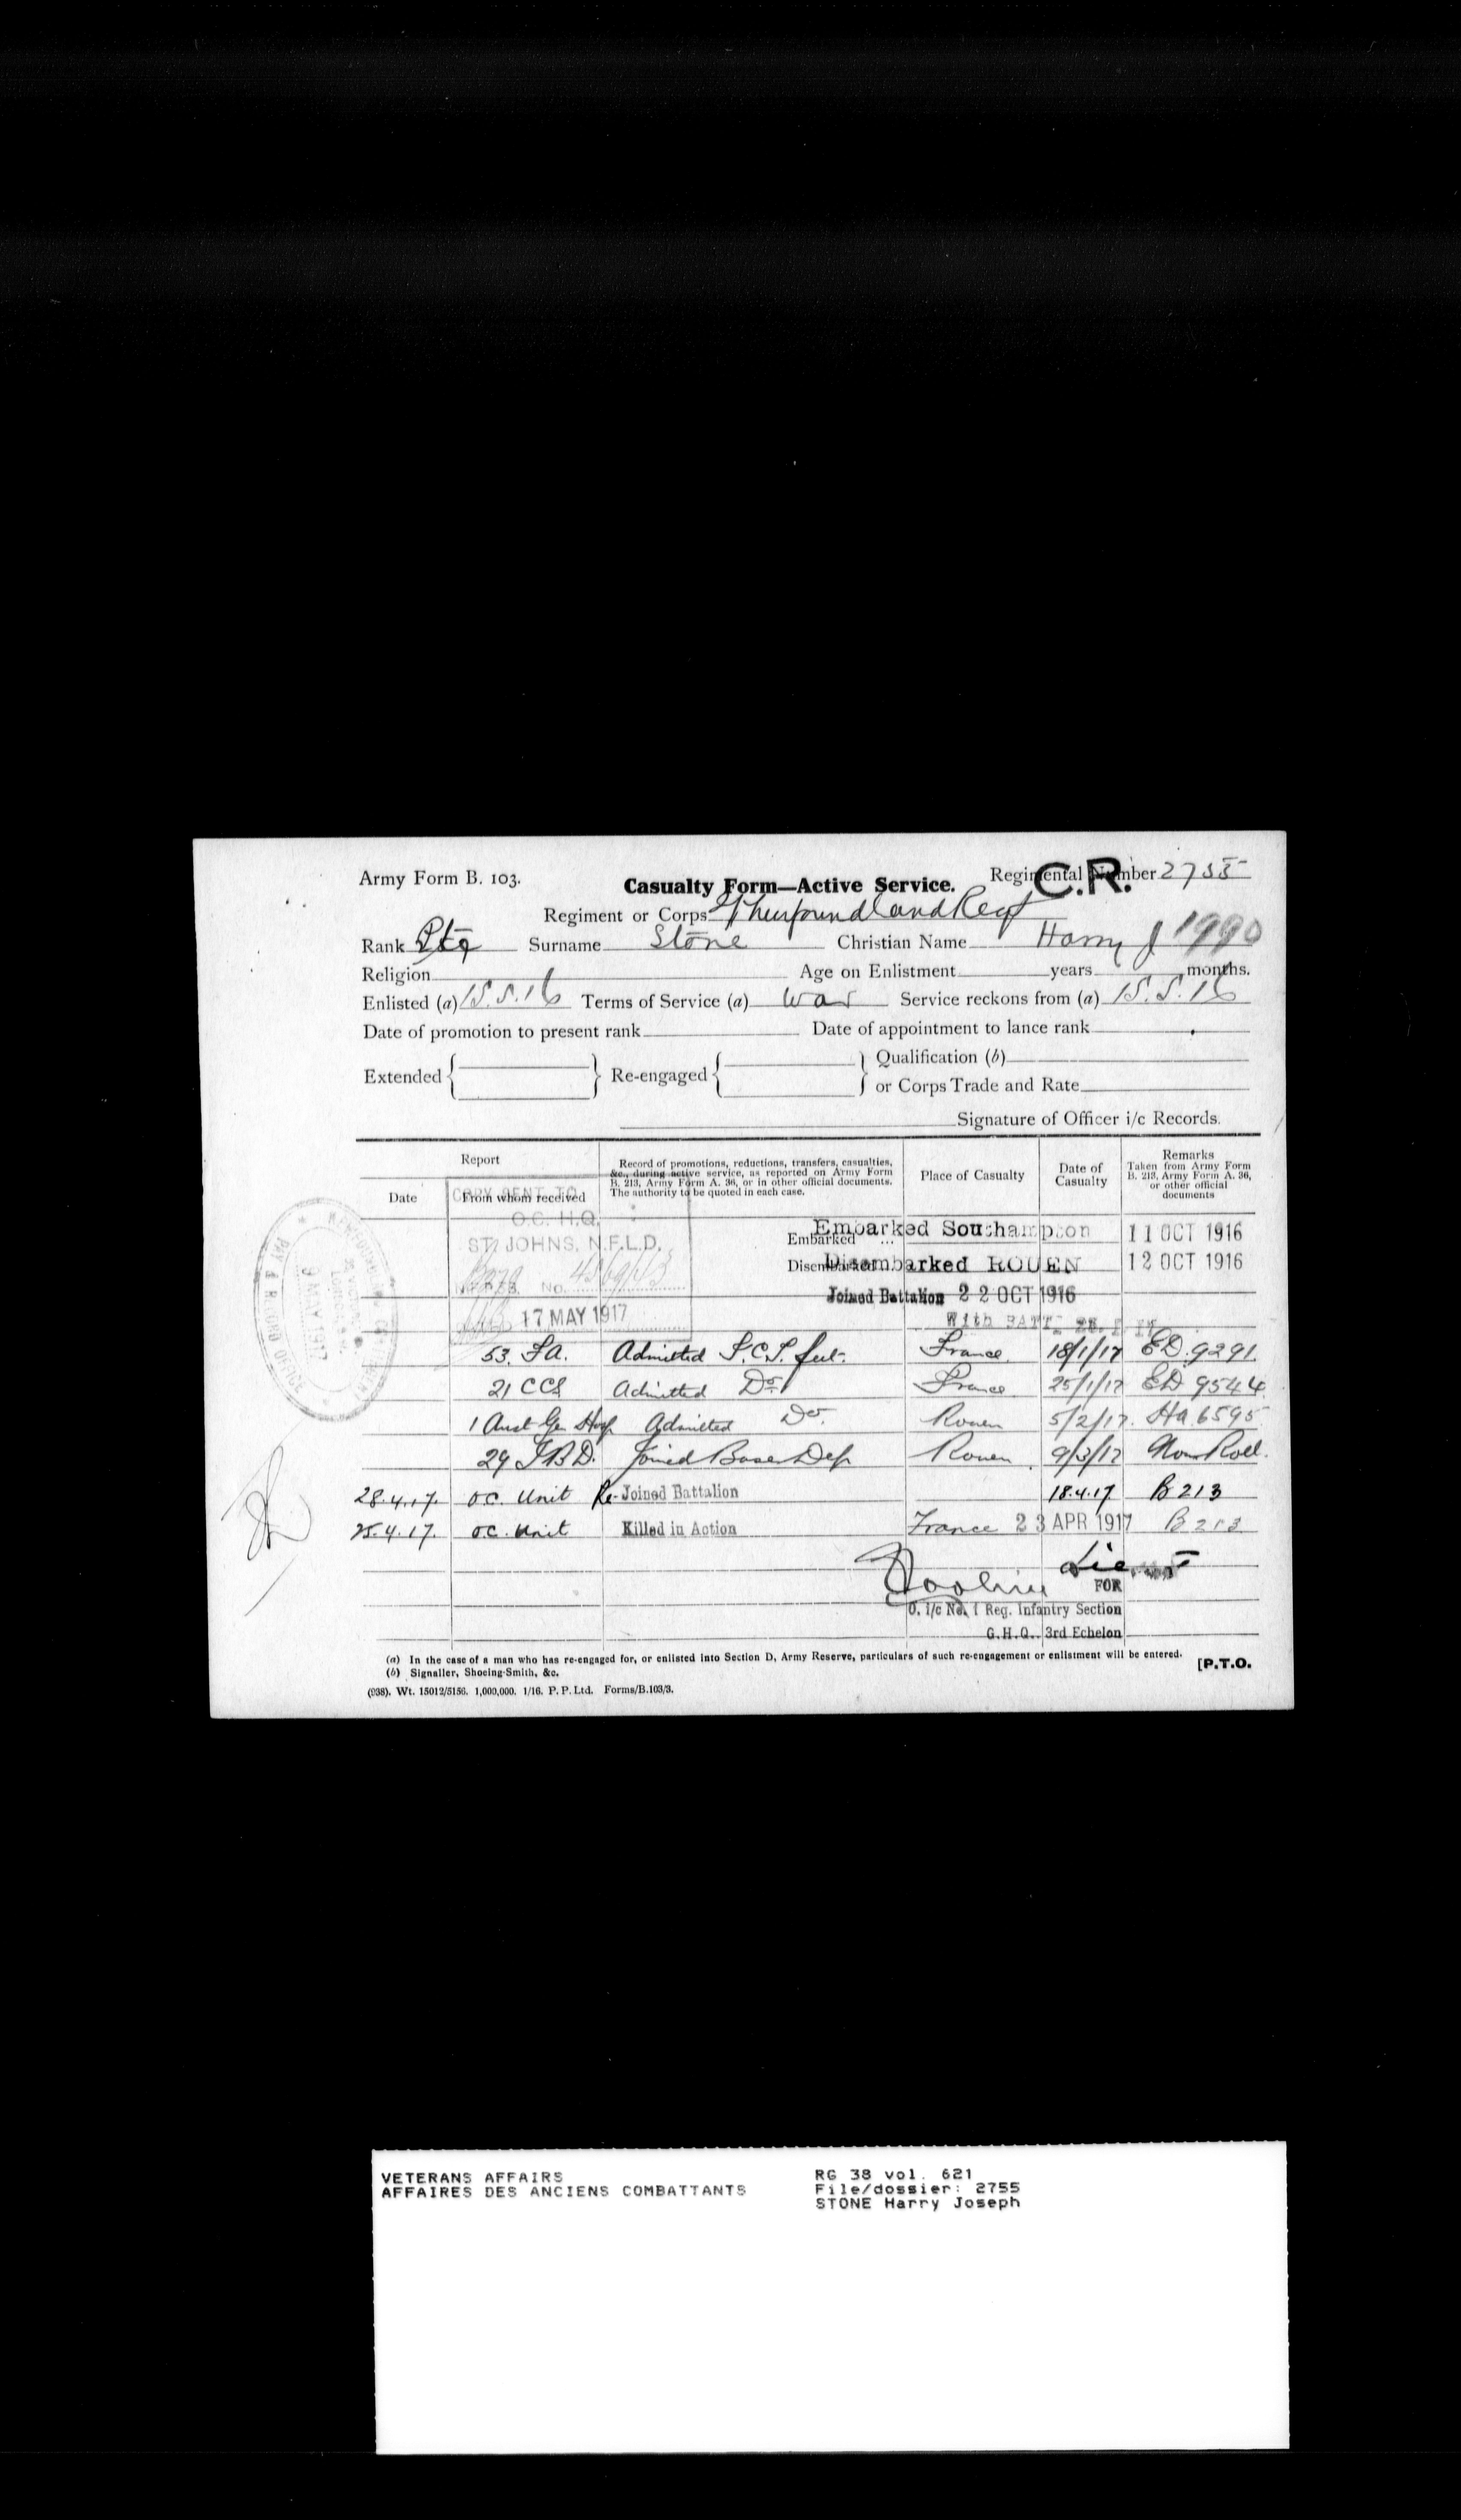 Army Form B. 103.
Casualty Form—Active Service.
Regimental Number 2755
C.R.
Regiment or Corps Newfoundland Regt
Rank Pte Surname Stone Christian Name Harry J 1990
Religion Age on Enlistment years months.
Enlisted (a) 15.5.16 Terms of Service (a) War Service reckons from (a) 15.5.16
Date of promotion to present rank Date of appointment to lance rank
Extended Re-engaged Qualification (b)
or Corps Trade and Rate
Signature of Officer i/c Records.
Report
Date From whom received
Record of promotions, reductions, transfers, casualties,
&c., during active service, as reported on Army Form
B. 213, Army Form A. 36, or in other official documents.
The authority to be quoted in each case.
Place of Casualty
Date of
Casualty
Remarks
Taken from Army Form
B. 213, Army Form A. 36,
or other official
documents
COPY SENT TO
O.C. H.Q.
ST. JOHNS, N.F.L.D.
No.
17 MAY 1917
PAY & RECORD OFFICE
9 MAY 1917
Embarked ... Embarked Southampton 11 OCT 1916
Disembarked Disembarked ROUEN 12 OCT 1916
Joined Battalion 22 OCT 1916
With BATT.
53. FA. Admitted I.C.T. feet. France 18/1/17 ED. 9291.
21 CCS Admitted Do France 25/1/17 ED 9544
1 Aust Gen Hosp Admitted Do. Rouen 5/2/17. Ha 6595
29 I.B.D. Joined Base Dep Rouen 9/3/17 Nom Roll.
28.4.17. O.C. Unit Re-Joined Battalion 18.4.17 B 213
25.4.17. O.C. Unit Killed in Action France 23 APR 1917 B 213
Lieut
FOR
O. i/c No. 1 Reg. Infantry Section
G.H.Q. 3rd Echelon
(a) In the case of a man who has re-engaged for, or enlisted into Section D, Army Reserve, particulars of such re-engagement or enlistment will be entered.
(b) Signaller, Shoeing-Smith, &c.
[P.T.O.
(938). Wt. 15012/5156. 1,000,000. 1/16. P. P. Ltd. Forms/B.103/3.
VETERANS AFFAIRS
AFFAIRES DES ANCIENS COMBATTANTS
RG 38 vol. 621
File/dossier: 2755
STONE Harry Joseph